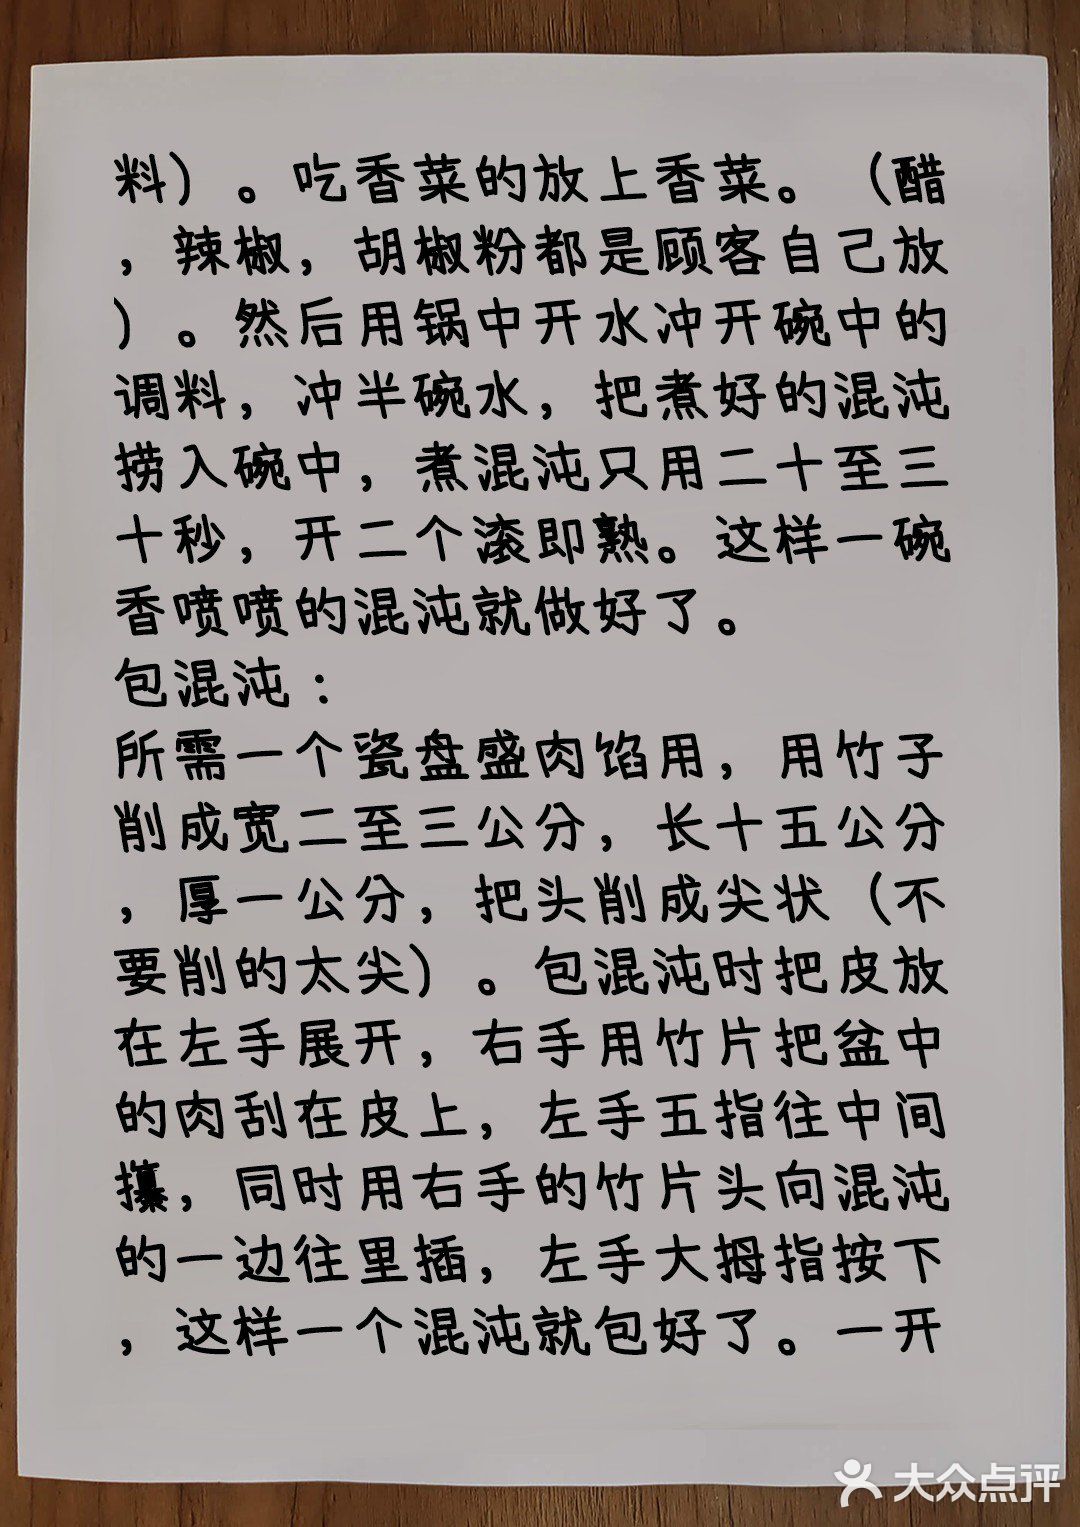 料）。吃香菜的放上香菜。（醋
，辣椒，胡椒粉都是顾客自己放
）。然后用锅中开水冲开碗中的
调料，冲半碗水，把煮好的混沌
捞入碗中，煮混沌只用二十至三
十秒，开二个滚即熟。这样一碗
香喷喷的混沌就做好了。
包混沌：
所需一个瓷盘盛肉馅用，用竹子
削成宽二至三公分，长十五公分
，厚一公分，把头削成尖状（不
要削的太尖）。包混沌时把皮放
在左手展开，右手用竹片把盆中
的肉刮在皮上，左手五指往中间
攥，同时用右手的竹片头向混沌
的一边往里插，左手大拇指按下
，这样一个混沌就包好了。一开
大众点评